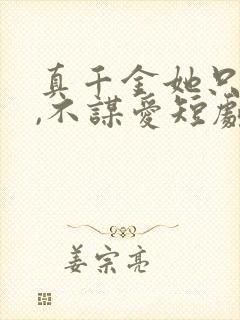 真千金她只
,不謀愛短劇
姜宗亮